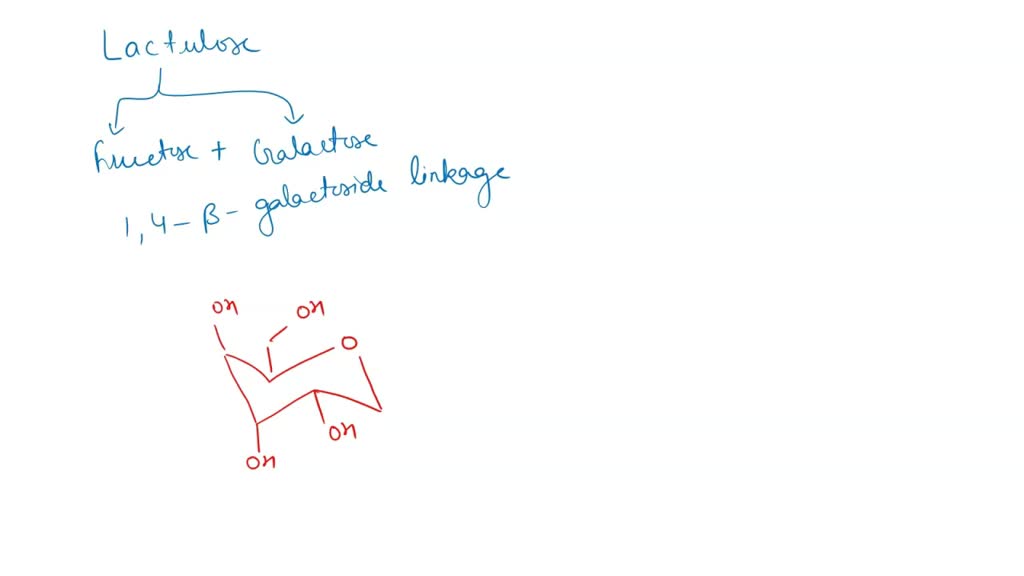 Lactulose
Fructose + Galactose
1,4-β- galactoside linkage
OH
OH
O
OH
OH